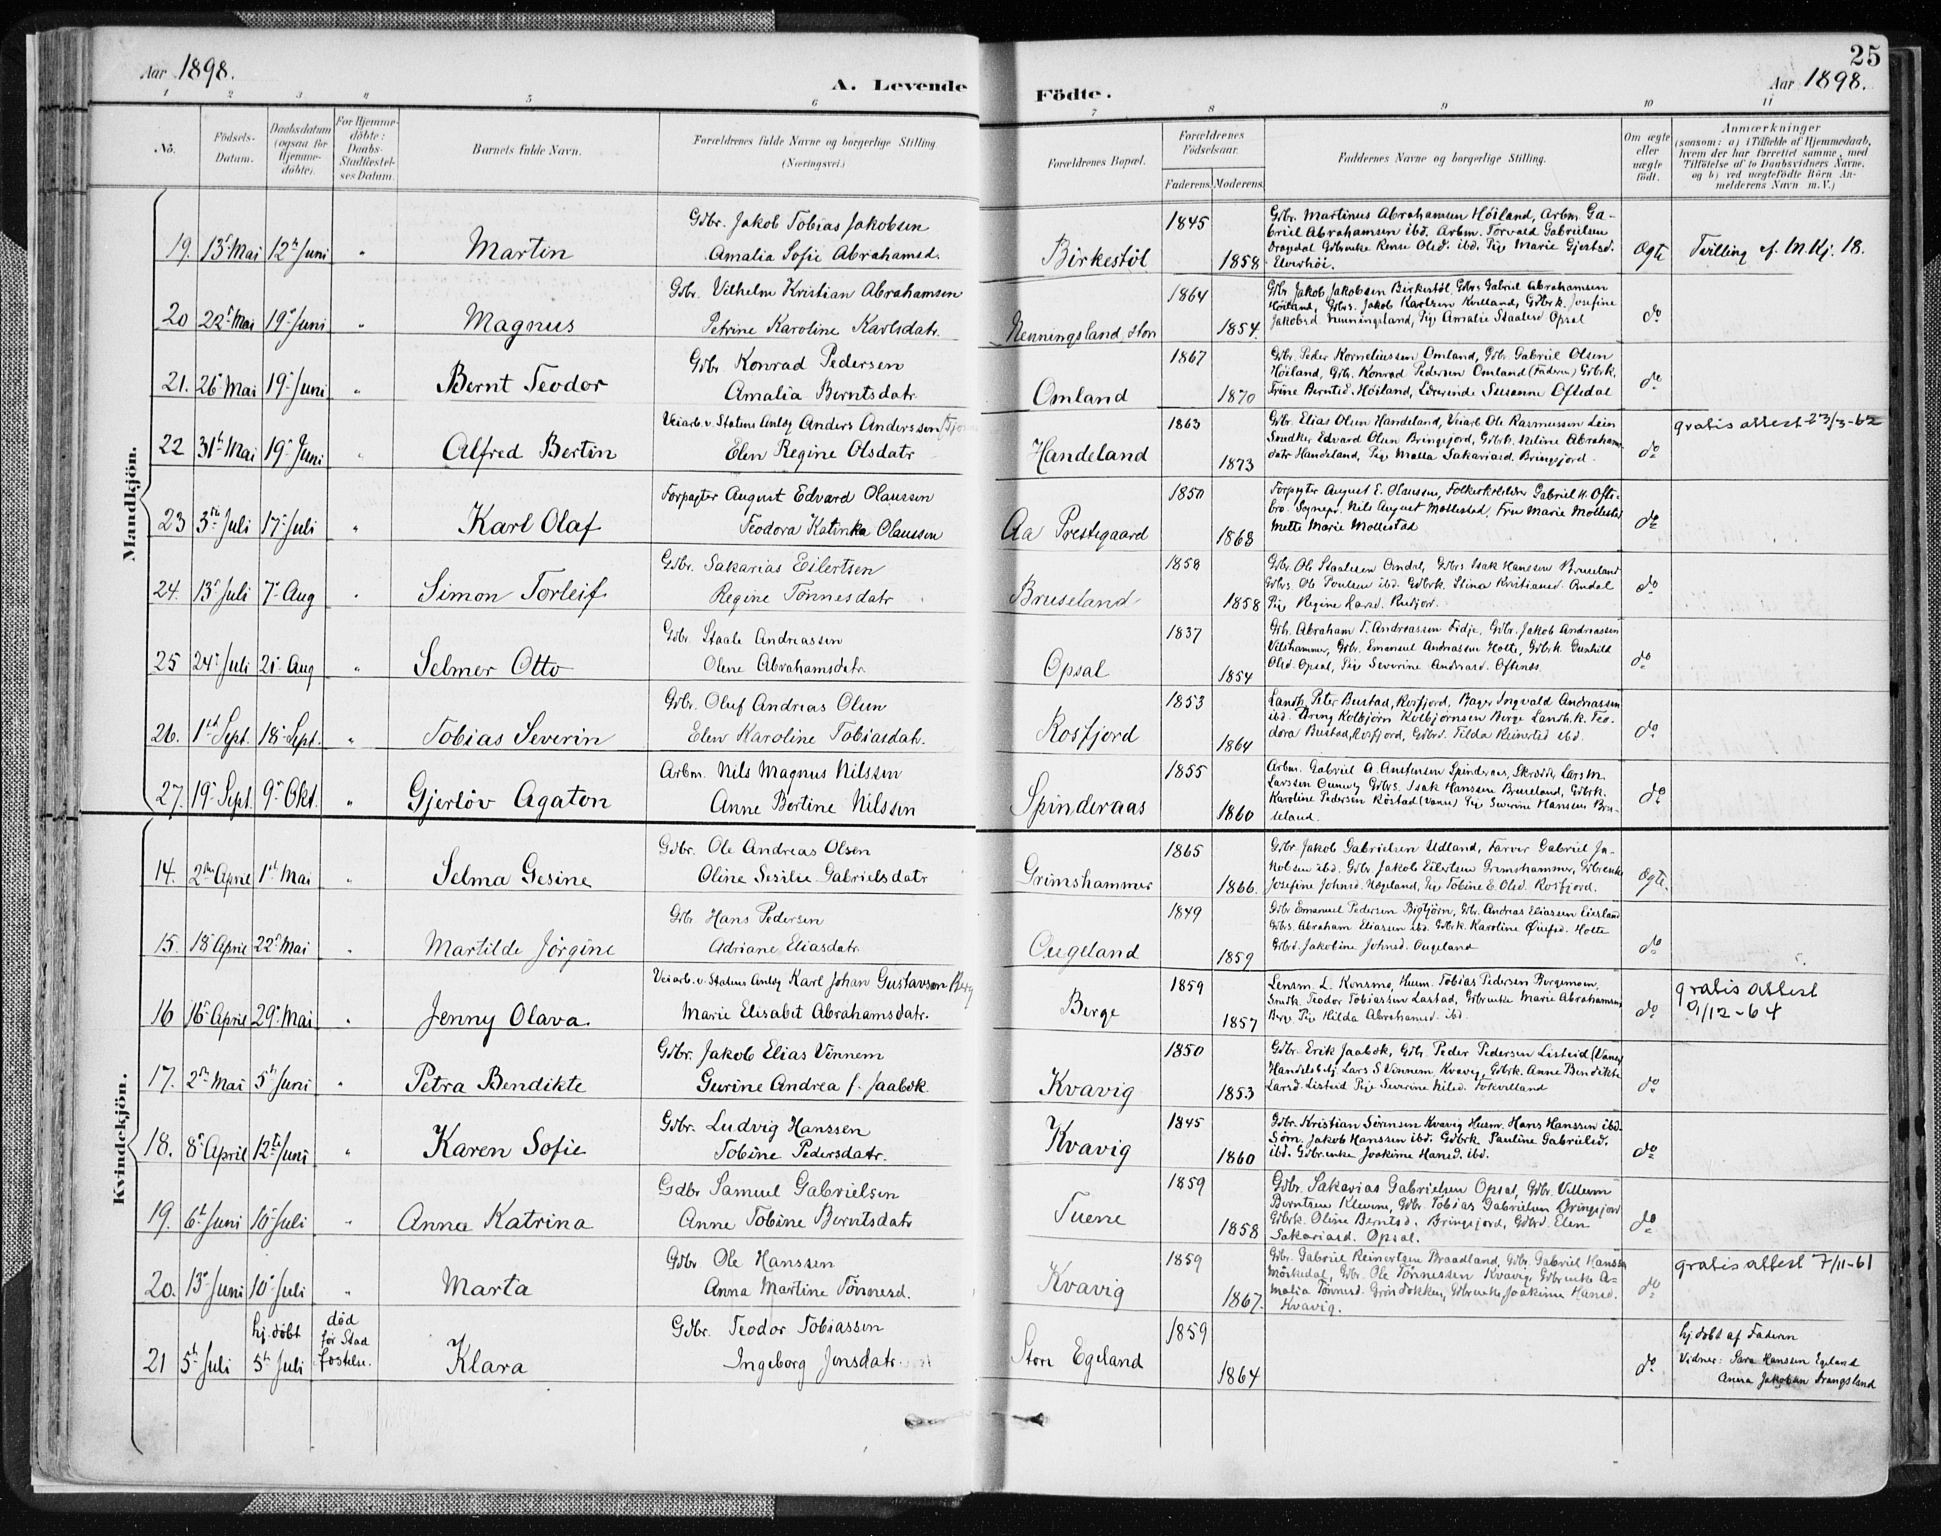 25
Aar 1898.
A. Levende Födte.
Aar 1898.
1 2 3 4 5 6 7 8 9 10 11
No.
Födsels-Datum.
Daabsdatum (ogsaa for Hjemme-döbte).
For Hjemme-döbte: Daabs-Stadfæstel-ses Datum.
Barnets fulde Navn.
Forældrenes fulde Navne og borgerlige Stilling (Næringsvei.)
Forældrenes Bopæl.
Forældrenes Födselsaar.
Faderens. Moderens.
Faddernes Navne og borgerlige Stilling.
Om ægte eller uægte födt.
Anmærkninger
(saasom: a) i Tilfælde af Hjemmedaab, hvem der har forrettet samme, med Tilföielse af to Daabsvidners Navne, og b) ved uægtefödte Börn An-melderens Navn m. V.)
Mandkjön.
19. 13de Mai 12te Juni " Martin
Gdbr. Jakob Tobias Jakobsen
Amalia Sofie Abrahamsd.
Birkestöl 1845 1858
Gdbr. Martinus Abrahamsen Höiland, Arbm. Ga-
briel Abrahamsen ibd. Arbm. Torvald Gabrielsen
Gdbrenke Olsd. ibd. Pige Marie Gjertsd.
Elverhöi.
Ægte Tvilling cf. M.Kj. 18.
20 22de Mai 19de Juni " Magnus
Gdbr. Vilhelm Kristian Abrahamsen
Petrine Karoline Karlsdatr.
Nenningsland, 1864 1854.
Gdbr. Jakob Jakobsen Birkestöl, Gdbrs. Gabriel Abrahamsen
Höiland, Gdbrs. Jakob Karlsen Kvilland, Gdbrk. Josefine
Jakobsd Nenningsland, Pige Amalie Staalesd Opsal
do
21. 26de Mai 19de Juni " Bernt Teodor
Gdbr. Konrad Pedersen
Amalia Berntsdatr.
Omland 1867 1870
Gdbr. Peder Korneliussen Omland, Gdbr. Gabriel Olsen
Höiland, Gdb. Konrad Pedersen Omland (Faderen) Gdbrk.
Trine Berntsd. Höiland, Lærerinde Susanne Oftedal
do
22 31te Mai 19de Juni " Alfred Bertin
Veiarb. v. Statens Anlæg Anders Anderssen
Elen Regine Olsdatr
Handeland 1863 1873
Gdbr. Elias Olsen Handeland, Veiarb. Ole Rasmussen Lein
Snedker Edvard Olsen Bringsjord, Gdbrk. Abrahams
datr Handeland, Pige Malla Sakariasd. Bringsjord.
do gratis attest 23/3-62
23 3die Juli 17de Juli " Karl Olaf
Forpagter August Edvard Olaussen
Teodora Katinka Olaussen
Aa Prestegaard 1850 1868
Forpagter August E. Olaussen, Gabriel H. Ofte-
bro. Sognepr. Nils August Mollestad, Fru Marie Mollestad
Mette Marie Mollestad
do
24. 13de Juli 7de Aug " Simon Torleif
Gdbr. Sakarias Eilertsen
Regine Tönnesdatr
Bruseland 1858 1858
Gdbr. Ole Staalesen Omdal, Gdbrs. Isak Hanssen Bruseland
Gdbrs. Ole Poulsen ibd. Gdbrk. Stina Kristiansd. Omdal
Pige Regine Larsd.
do
25 24de Juli 21de Aug " Selmer Otto
Gdbr. Staale Andreassen
Olene Abrahamsdatr.
Opsal 1837 1854
Gdb. Abraham T. Andreassen Fidje, Gdbr. Jakob Andreassen
Vilshammer, Gdbr. Emanuel Andreassen Holte, Gdbrk. Gunhild
Olsd. Opsal, Pige Severine Andreasd. Oftenes.
do
26. 1ste Sept. 18de Sept. " Tobias Severin
Gdbr. Oluf Andreas Olsen
Elen Karoline Tobiasdatr.
Rosfjord 1853 1864
Landh. Peter Bustad, Rosfjord, Bager Ingvald Andreassen
ibd. Dreng Kolbjörn Kolbjörnsen Berge Landh.k. Teo-
dora Bustad, Rosfjord, Gdbrd. Tilda Reinertsd ibd.
do
27. 19de Sept. 9de Okt. " Gjerlöv Agaton
Arbm. Nils Magnus Nilssen
Anne Bertine Nilssen
Spinderaas 1855 1860
Arbm. Gabriel A. Austensen Spinderaas, Skræd. Lars M.
Larssen Gdbrs. Isak Hanssen Bruseland, Gdbrk.
Karoline Pedersen Röstad (Vanse) Pige Severine Hansen Bru-
seland.
do
Kvindekjön.
14. 2den April 1ste Mai " Selma Gesine
Gdbr. Ole Andreas Olsen
Oline Sesilie Gabrielsdatr
Grimshammer 1865 1866.
Gdbr. Jakob Gabrielsen Udland, Farver Gabriel Ja-
kobsen ibd. Gdb. Jakob Eilertsen Grimshammer, Gdbrenke
Josefine Johnsd. Hageland, Pige Tobine E. Olsd. Rosfjord.
Ægte.
15. 18de April 22de Mai " Martilde Jörgine
Gdbr. Hans Pedersen
Adriane Eliasdatr.
Augeland 1849 1859
Gdbr Emanuel Pedersen Bigtjörn, Gdb. Andreas Eliassen Eiesland
Gdbrs. Abraham Eliassen ibd. Gdbrk. Karoline Holte
Gdbrd. Jakobine Johnsd. Augeland
do
16 16de April 29de Mai " Jenny Olava.
Veiarb. v. Statens Anlæg Karl Johan Gustavson Berg
Marie Elisabet Abrahamsdatr.
Berge 1859 1857
Lensm. L. Konsmo, Husm. Tobias Pedersen Bergemoen,
Smdk. Teodor Tobiassen Lastad, Gdbrenke Marie Abrahamsen
Berg. Pige Hilda Abrahamsd. ibd.
do gratis attest
9/12-64
17. 2den Mai 5te Juni " Petra Bendikte
Gdbr. Jakob Elias Vennem
Gurine Andrea f. Jaabæk.
Kvavig 1850 1853
Gdbr. Erik Jaabæk, Gdb. Peder Pedersen Listeid (Vanse)
Handelsbetj. Lars S Vennem Kvavig, Gdbrk. Anne Bendikte
Larsd. Listeid Pige Severine Nilsd. Fokvilland
do
18. 8de April 12te Juni " Karen Sofie
Gdbr. Ludvig Hanssen
Tobine Pedersdatr.
Kvavig 1845 1860
Gdbr. Kristian Sörensen Kvavig Husm. Hans Hanssen ibd.
Sjöm. Jakob Hanssen ibd. Gdbrk. Pauline Gabrielsd.
ibd. Gdbrenke Joakime Hansd. ibd.
do
19. 6te Juni 10de Juli " Anna Katrina
Gdbr Samuel Gabrielsen
Anne Tobine Berntsdatr
Tuene 1859 1858
Gdbr. Sakarias Gabrielsen Opsal, Gdbr. Villum
Berntsen Kleven, Gdbr. Tobias Gabrielsen Bringsjord
Gdbrk. Oline Berntsd. Bringsjord, Gdbrd. Elen
Sakariasd. Opsal.
do
20. 13de Juni 10de Juli " Marta
Gdbr. Ole Hanssen
Anna Martine Tönnesd.
Kvavig 1859 1867.
Gdbr. Gabriel Reinertsen Braadland, Gdbr. Gabriel Hanssen
Mörkedal, Gdbr. Ole Tönnessen Kvavig, Gdbrenke A-
malia Tönnesd. Gröndokken, Gdbrenke Joakime Hansd.
Kvavig.
do gratis attest 7/11-61
21 5te Juli hj. döbt 5te Juli död för Stad fæstelse. Klara
Gdbr. Teodor Tobiassen
Ingeborg Jensdatr.
Store Egeland 1859 1864
do
hj. döbt af Faderen
Vidner: Sara Hanssen Egeland
Anna Jakobsen Drangsland